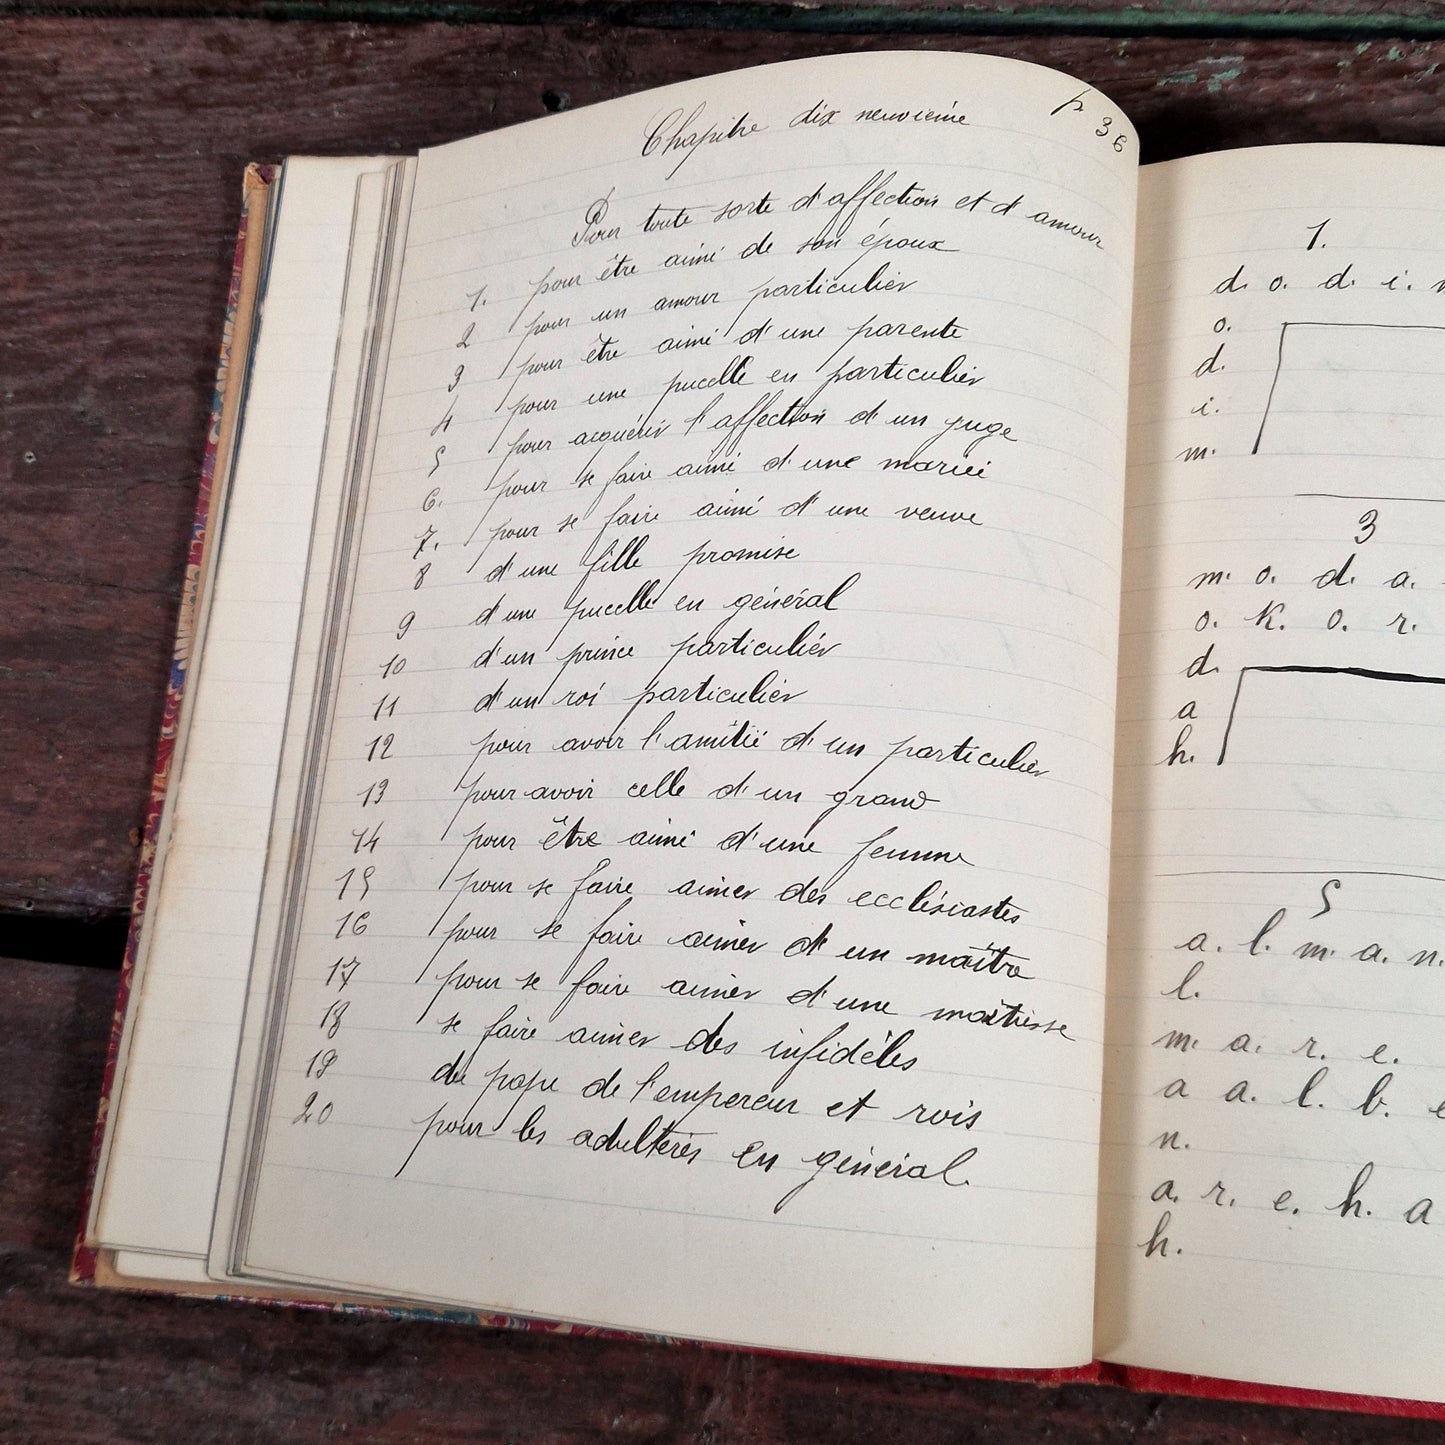 Chapitre dix neuvième
p 36
Pour toute sorte d'affection et d'amour
1. pour être aimé de son époux
2 pour un amour particulier
3 pour être aimé d'une parente
4 pour une pucelle en particulier
5 pour acquérir l'affection d'un juge
6. pour se faire aimé d'une mariée
7. pour se faire aimé d'une veuve
8 d'une fille promise
9 d'une pucelle en général
10 d'un prince particulier
11 d'un roi particulier
12 pour avoir l'amitié d'un particulier
13 pour avoir celle d'un grand
14 pour être aimé d'une femme
15 pour se faire aimer des ecclésiastes
16 pour se faire aimer d'un maître
17 pour se faire aimer d'une maîtresse
18 se faire aimer des infidèles
19 du pape de l'empereur et rois
20 pour les adultères en général.
1.
d. o. d. i.
o.
d.
i.
m.
3
m. o. d. a.
o. k. o. r.
d.
a
h.
5
a. l. m. a. n.
l.
m. a. r. e.
a a. l. b. e
n.
a. r. e. h. a
h.